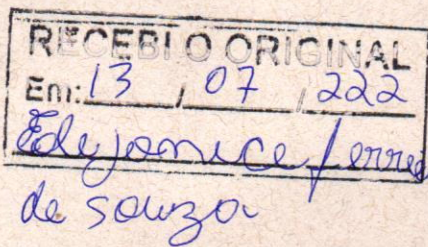 RECEBI O ORIGINAL
Em: 13 / 07 / 222
Edejonice ferrei
de souza